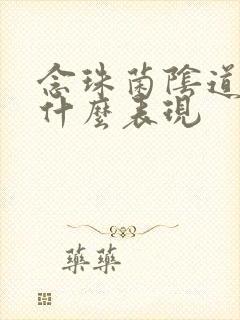 念珠菌陰道
什麼表現
藥藥